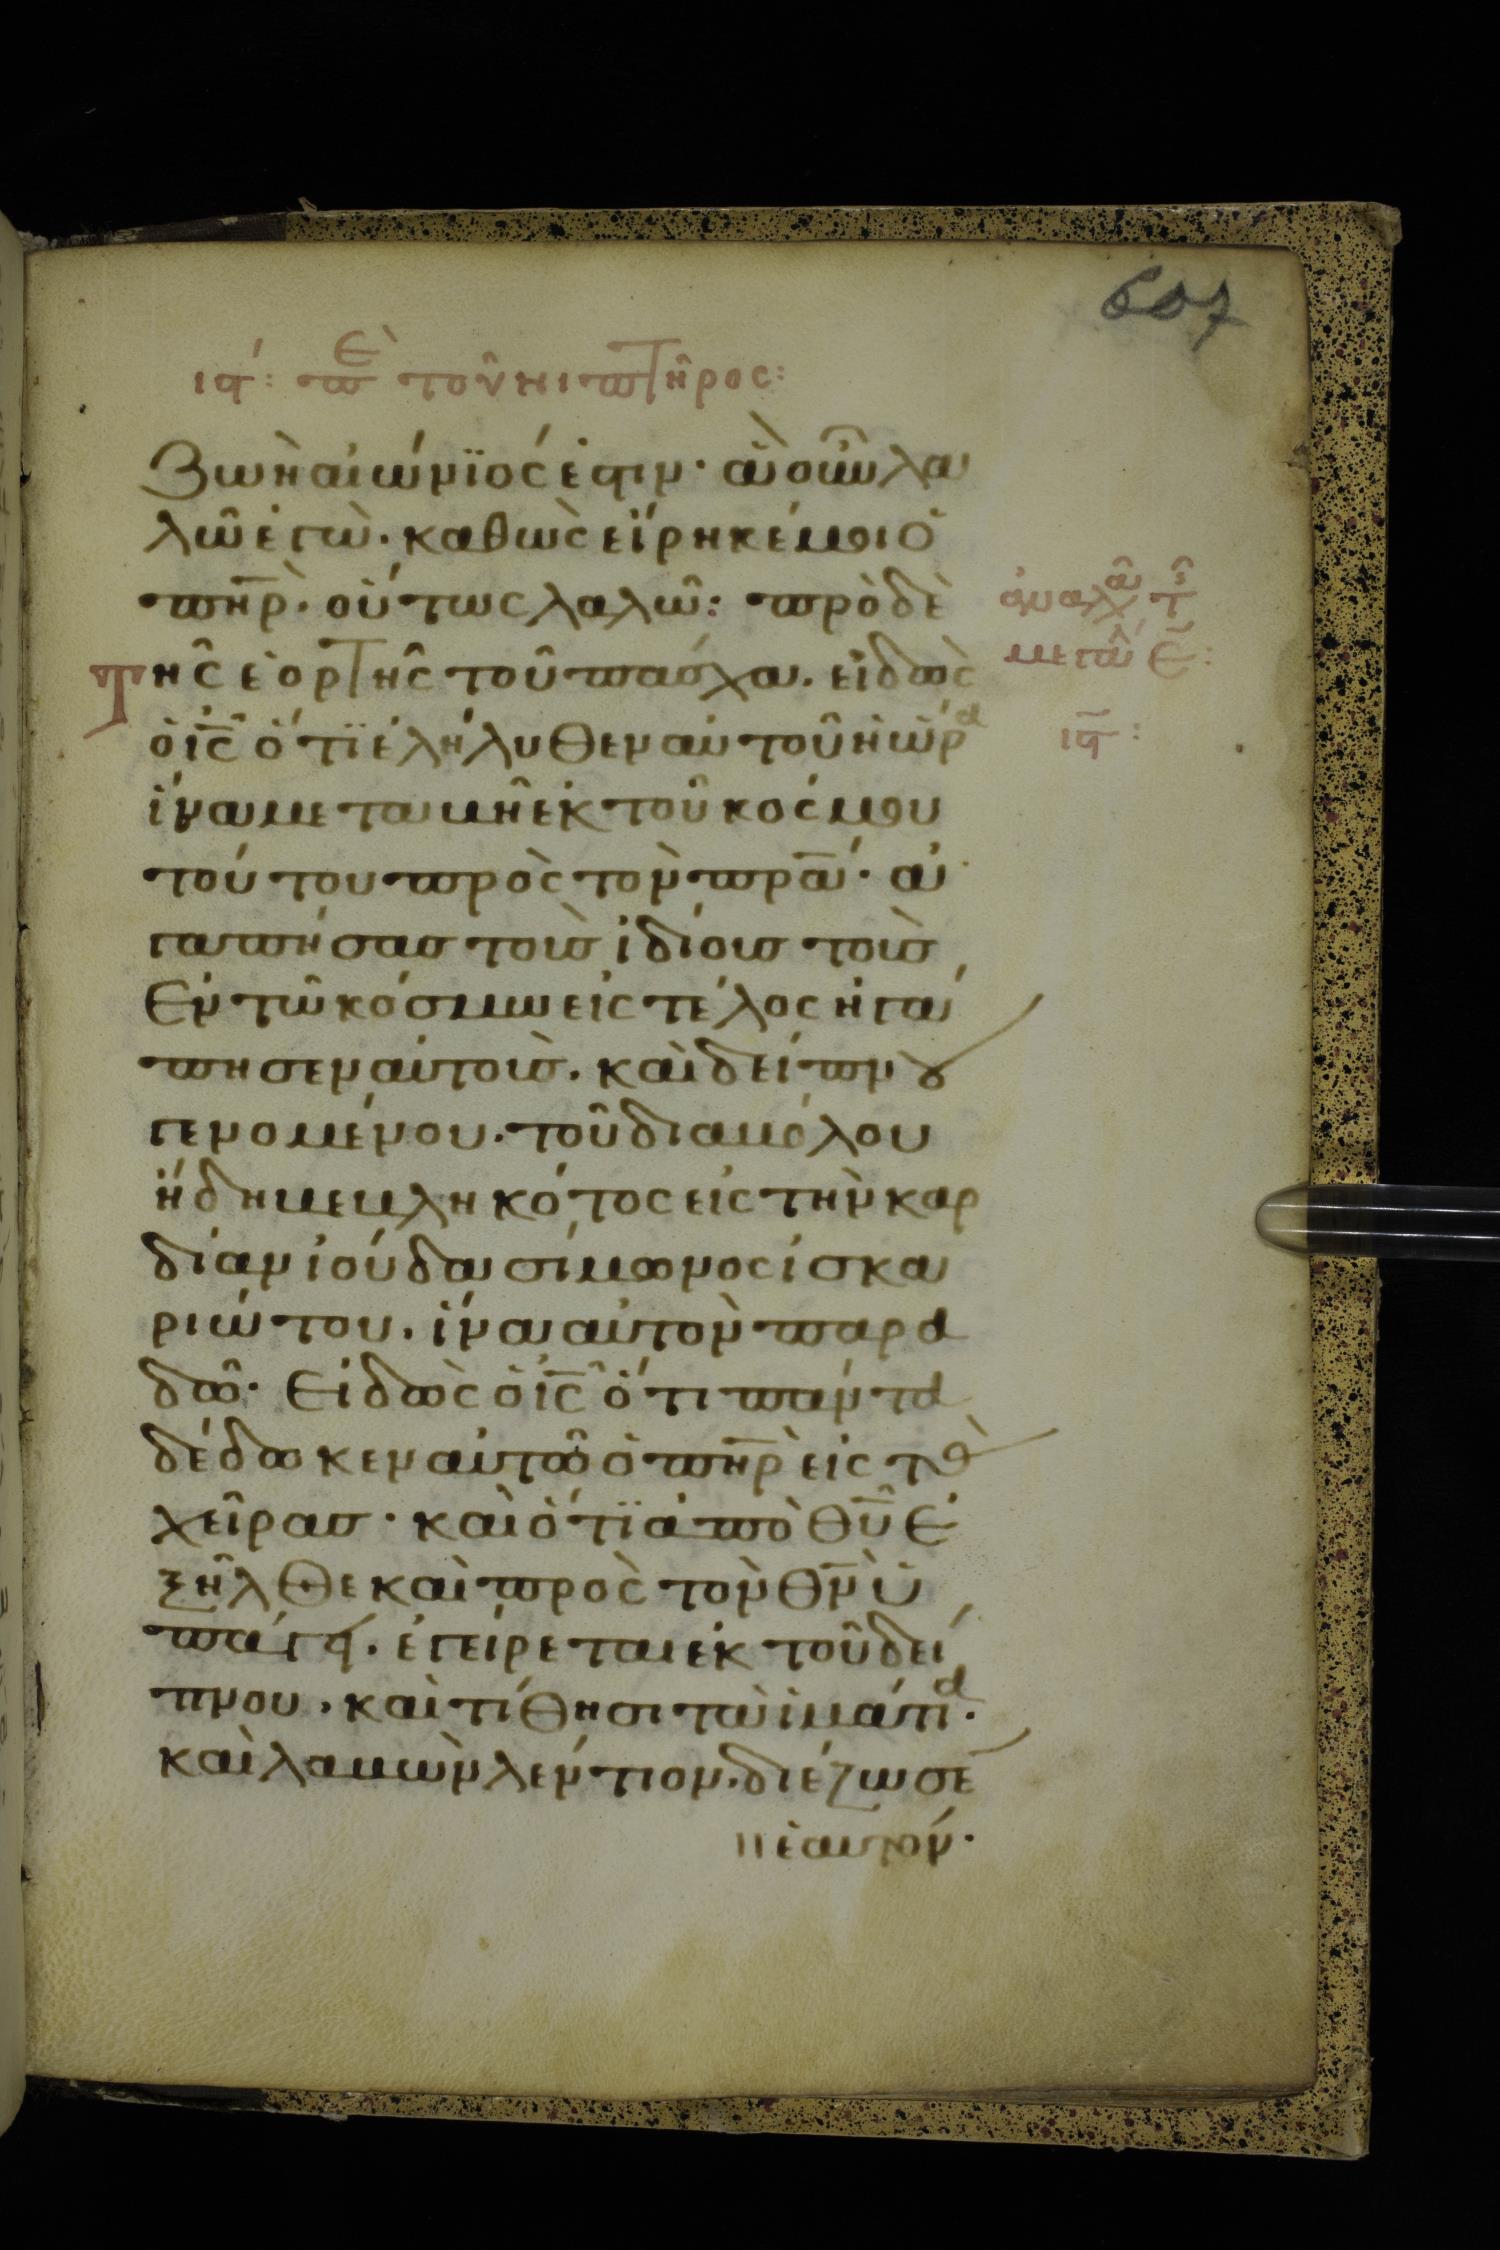 607
ιϛ́: πε τοῦ νιπτῆρος:
ζωὴ αἰώνϊός ἐστιν· ἃ οὖν λα
λῶ ἐγὼ. καθὼς εἴρηκέ μοι ὁ
πη̅ρ̀. οὕτως λαλῶ: πρὸ δὲ
τῆς ἑορτῆς τοῦ πάσχα. εἰδὼς
ὁ ι̅ς̅ ὅτϊ ἐλήλυθεν αὐτοῦ ἡ ὥρα
ἵνα μεταβῆ ἐκ τοῦ κόσμου
τούτου πρὸς τὸν πρ̅α̅· ἀ
γαπήσας τοὺς ἰδίους τοὺς
ἐν τῶ κόσμω εἰς τέλος ἠγά
πησεν αὐτοὺς. καὶ δείπνου
γενομένου. τοῦ διαβόλου
ἤδη βεβληκότος εἰς τὴν καρ
δίαν ἰούδα σίμωνος ἰσκα
ριώτου. ἵνα αὐτὸν παρα
δῶ· Εἰδὼς ὁ ι̅ς̅ ὅτι πάντα
δέδωκεν αὐτῶ ὁ πη̅ρ̀ εἰς τὰς
χεῖρας· καὶ ὅτϊ ἀπὸ θ̅υ̅ ἐ
ξῆλθε καὶ πρὸς τὸν θ̅ν̅ ὑ
πάγει. ἐγείρεται ἐκ τοῦ δεί
πνου. καὶ τίθησι τὰ ἱμάτια.
καὶ λαβὼν λέντιον. διέζωσε
ἑαυτόν·
μετὰ
ιϛ̅: